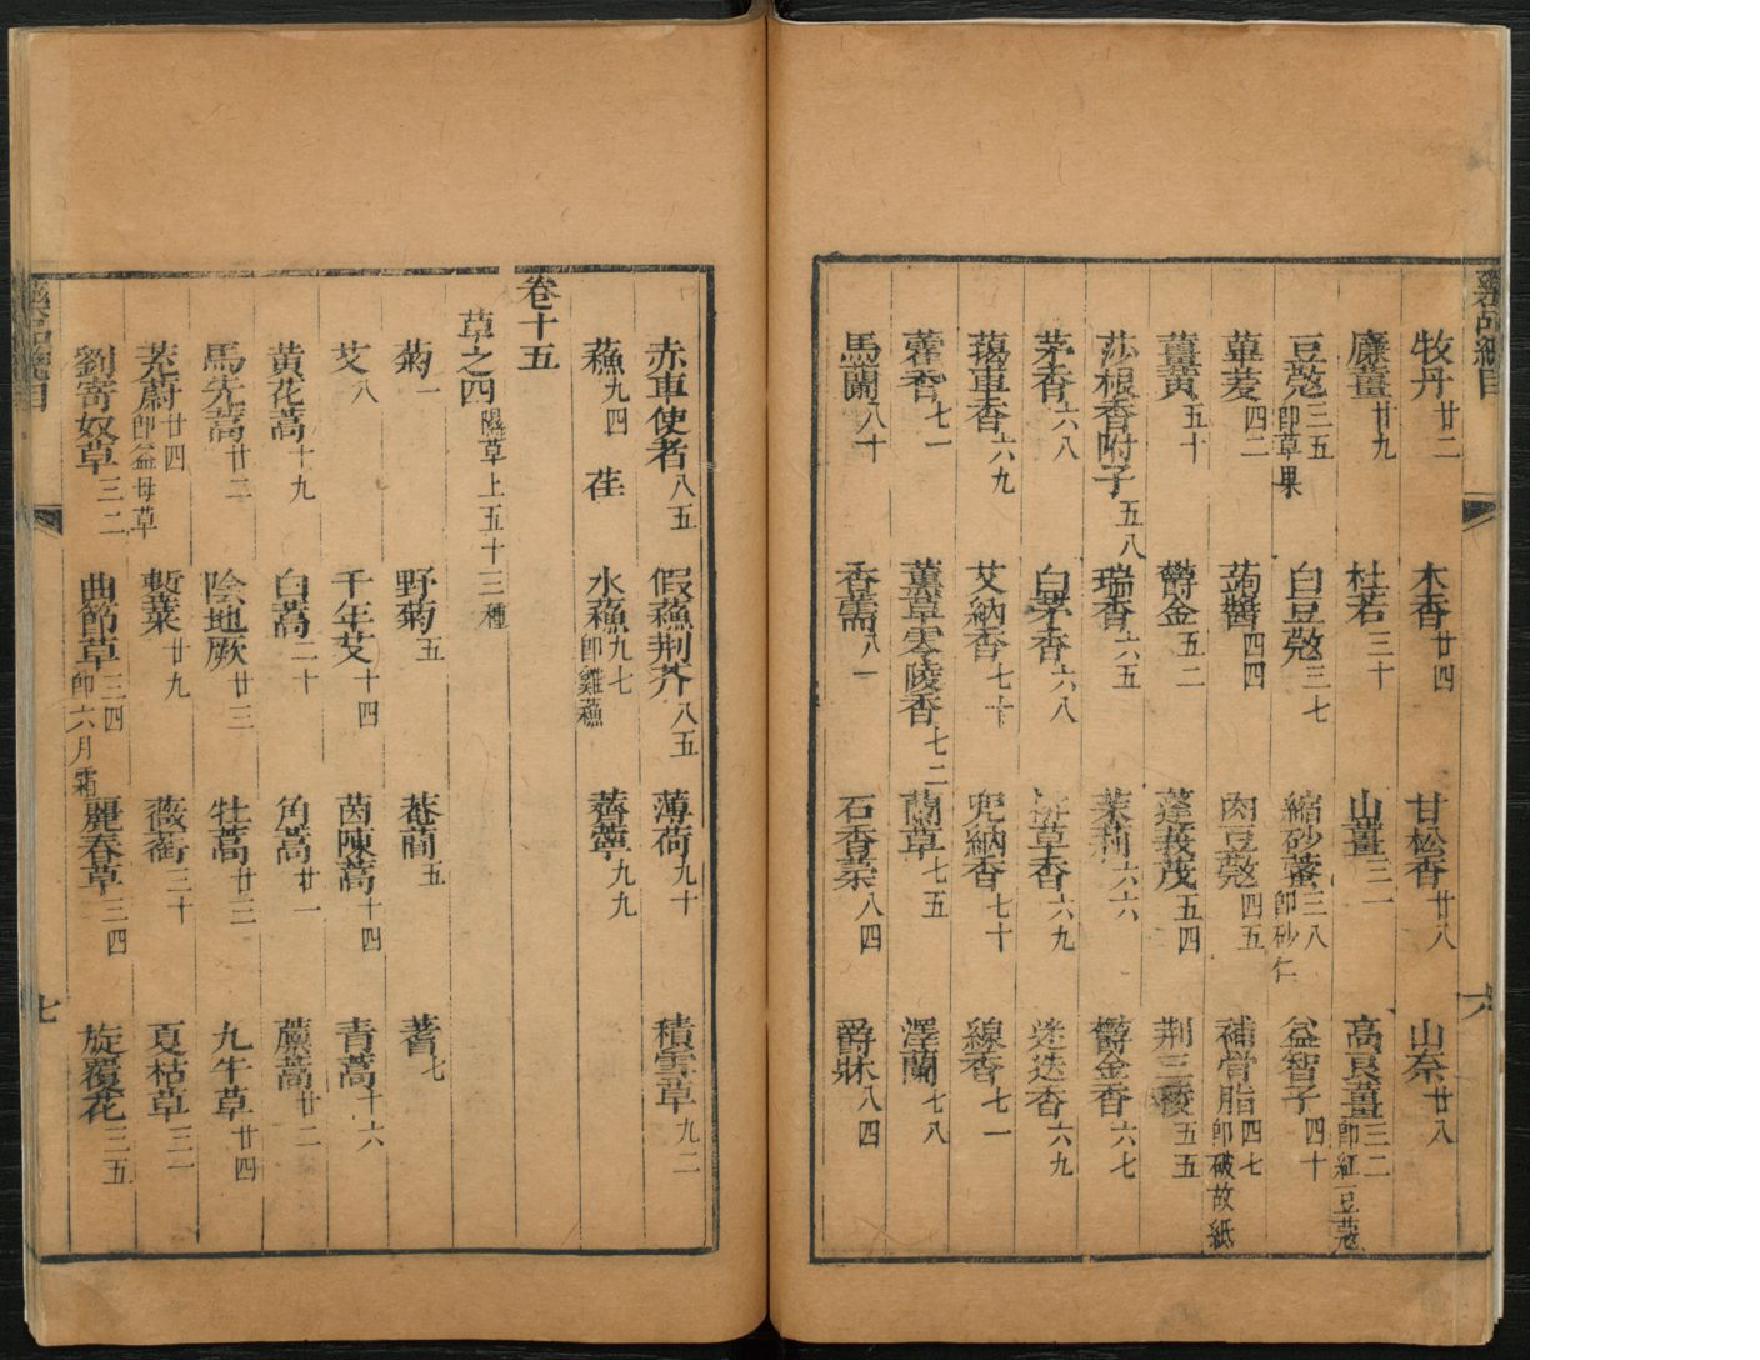 藥品總目
六
牧丹 廿二 木香 廿四 甘松香 廿八 山奈 廿八
廉薑 廿九 杜若 三十 山薑 三一 高良薑 三二 卽紅豆蔲
豆蔲 三五 卽草果 白豆蔲 三七 縮砂蔤 三八 卽砂仁 益智子 四十
蓽茇 四二 蒟醬 四四 肉豆蔲 四五 補骨脂 四七 卽破故紙
薑黃 五十 欝金 五二 蓬莪茂 五四 荆三稜 五五
莎根香附子 五八 瑞香 六五 茉莉 六六 欝金香 六七
茅香 六八 白茅香 六八 排草香 六九 迷迭香 六九
藒車香 六九 艾納香 七十 兜納香 七十 線香 七一
藿香 七一 薰草零陵香 七二 蘭草 七五 澤蘭 七八
馬蘭 八十 香薷 八一 石香葇 八四 爵牀 八四
赤車使者 八五 假蘓荆芥 八五 薄荷 九十 積雪草 九二
蘓 九四 荏 水蘓 九七 卽雞蘓 薺薴 九九
卷十五
草之四 隰草上五十三種
菊 一 野菊 五 菴䕡 五 蓍 七
艾 八 千年艾 十四 茵陳蒿 十四 青蒿 十六
黃花蒿 十九 白蒿 二十 角蒿 廿一 䕲蒿 廿二
馬先蒿 廿二 陰地厥 廿三 牡蒿 廿三 九牛草 廿四
茺蔚 廿四 卽益母草 蔪菜 廿九 薇銜 三十 夏枯草 三一
劉寄奴草 三二 曲節草 三四 卽六月霜 麗春草 三四 旋覆花 三五
藥品總目
七